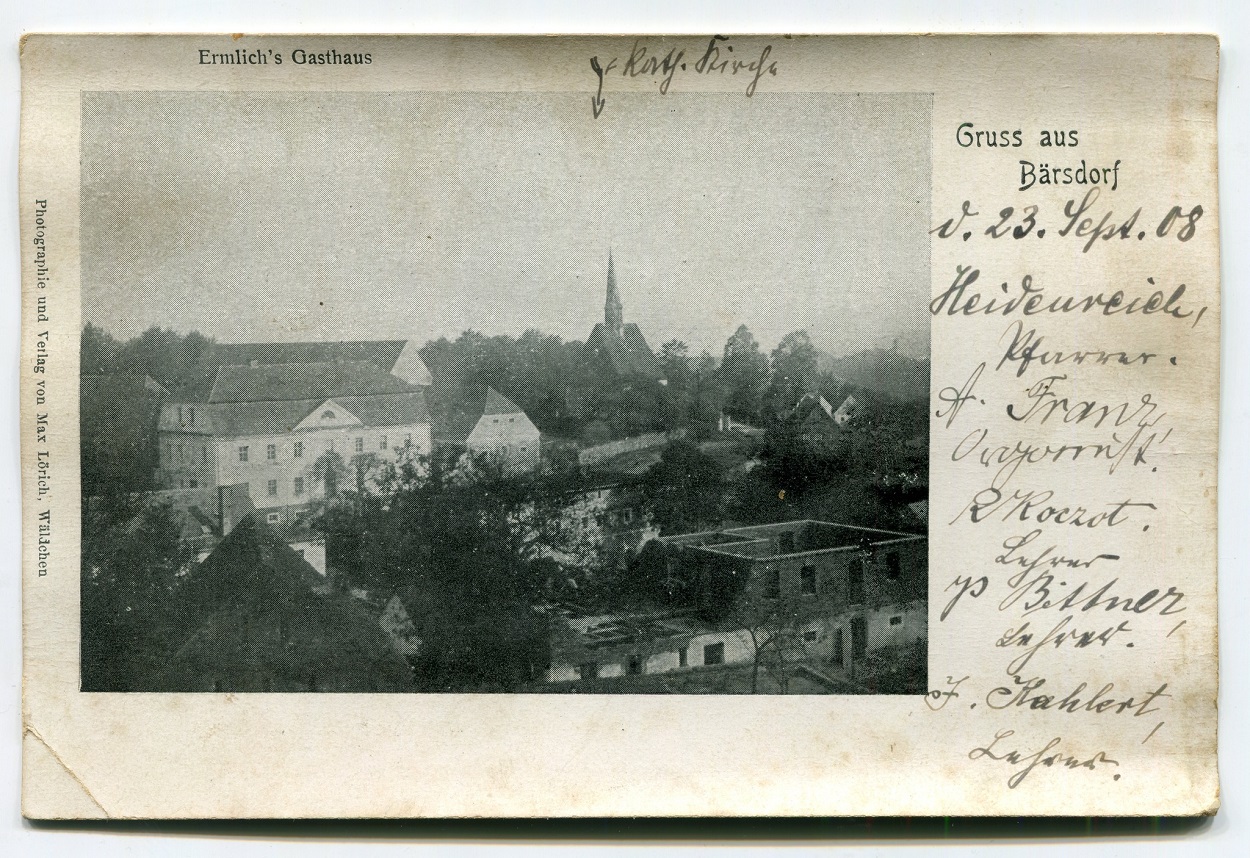 Ermlich's Gasthaus
Kath. Kirche
Gruss aus
Bärsdorf
d. 23. Sept. 08
Heidenreich,
Pfarrer.
A. Franz,
Organist.
Koczot.
Lehrer
P Bittner,
Lehrer.
J. Kahlert,
Lehrer.
Photographie und Verlag von Max Lörich, Wäldchen